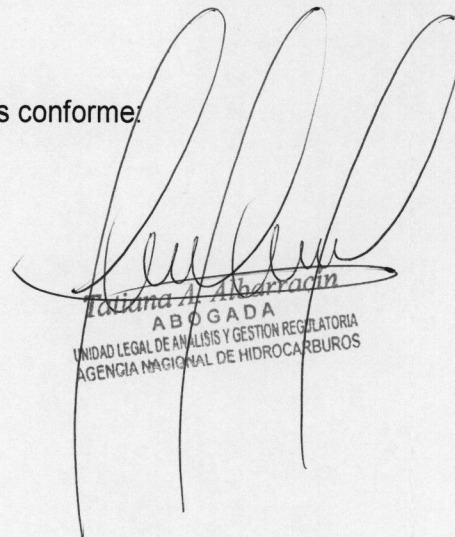 s conforme:
Tatiana A. Albarracin
ABOGADA
UNIDAD LEGAL DE ANALISIS Y GESTION REGULATORIA
AGENCIA NACIONAL DE HIDROCARBUROS